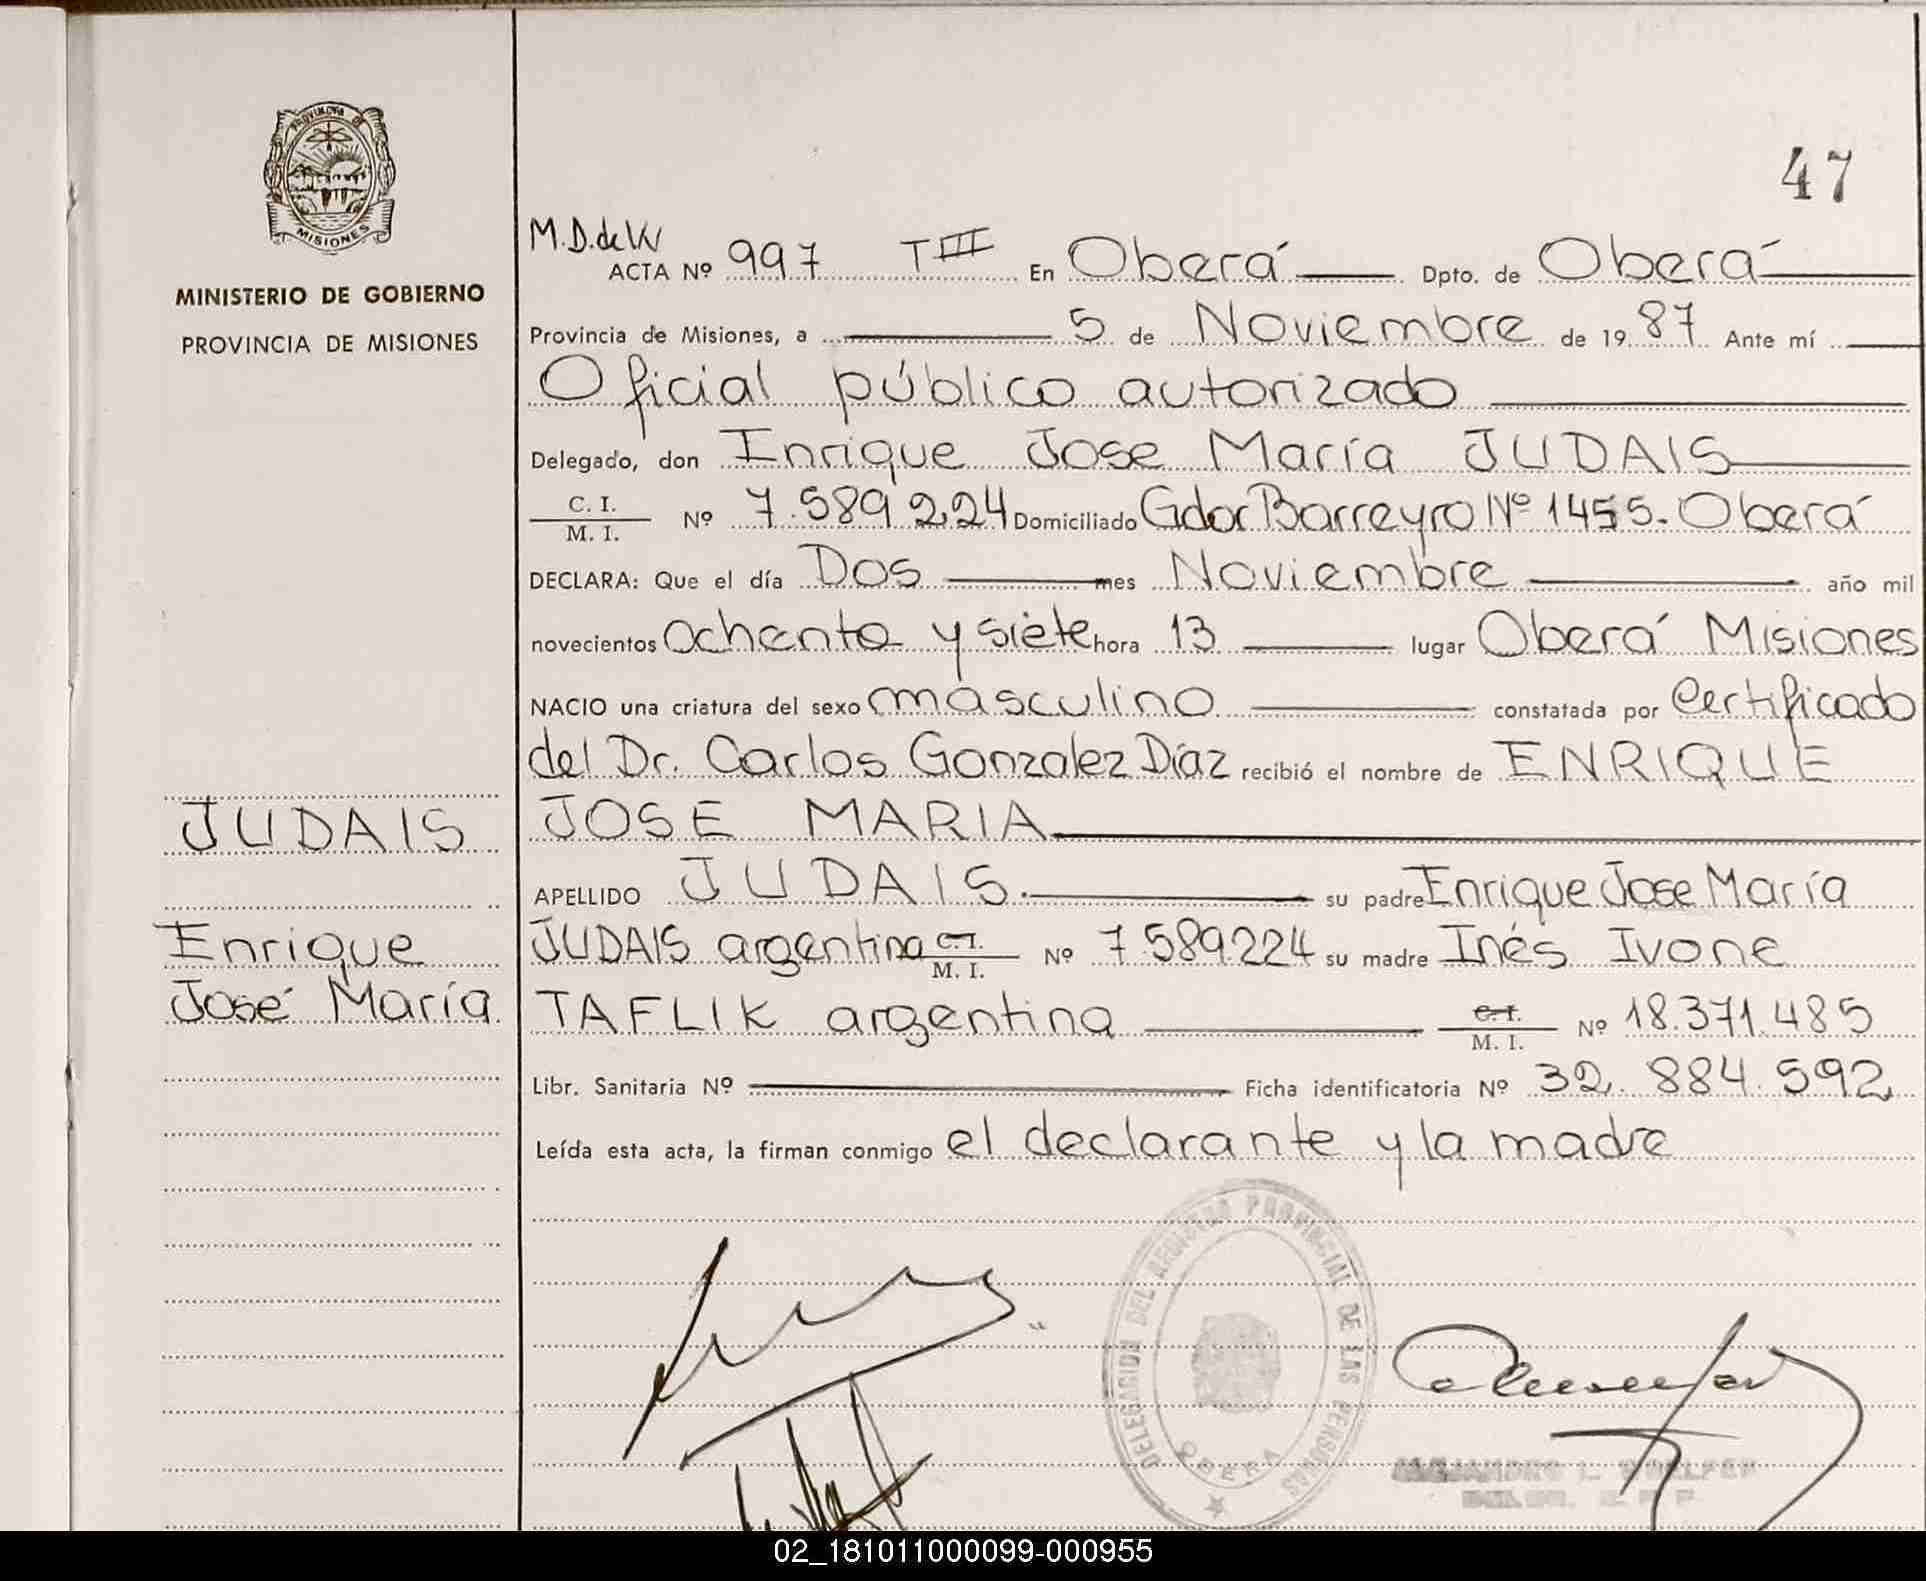 PROVINCIA DE
MISIONES
MINISTERIO DE GOBIERNO
PROVINCIA DE MISIONES
JUDAIS
Enrique
José María
47
M.D.de W
ACTA Nº 997 T III En Oberá Dpto. de Oberá
Provincia de Misiones, a 5 de Noviembre de 1987 Ante mí
Oficial público autorizado
Delegado, don Enrique Jose María JUDAIS
C. I.
M. I. Nº 7.589.224 Domiciliado Gdor Barreyro Nº 1455. Oberá
DECLARA: Que el día Dos mes Noviembre año mil
novecientos Ochenta y siete hora 13 lugar Oberá Misiones
NACIO una criatura del sexo masculino constatada por Certificado
del Dr. Carlos Gonzalez Díaz recibió el nombre de ENRIQUE
JOSE MARIA
APELLIDO JUDAIS. su padre Enrique Jose María
JUDAIS argentina C.I. M. I. Nº 7.589.224 su madre Inés Ivone
TAFLIK argentina C.I. M. I. Nº 18.371.485
Libr. Sanitaria Nº Ficha identificatoria Nº 32.884.592
Leída esta acta, la firman conmigo el declarante y la madre
DELEGACION DEL REGISTRO PROVINCIAL DE LAS PERSONAS
OBERA
ALEJANDRO L.
02_181011000099-000955